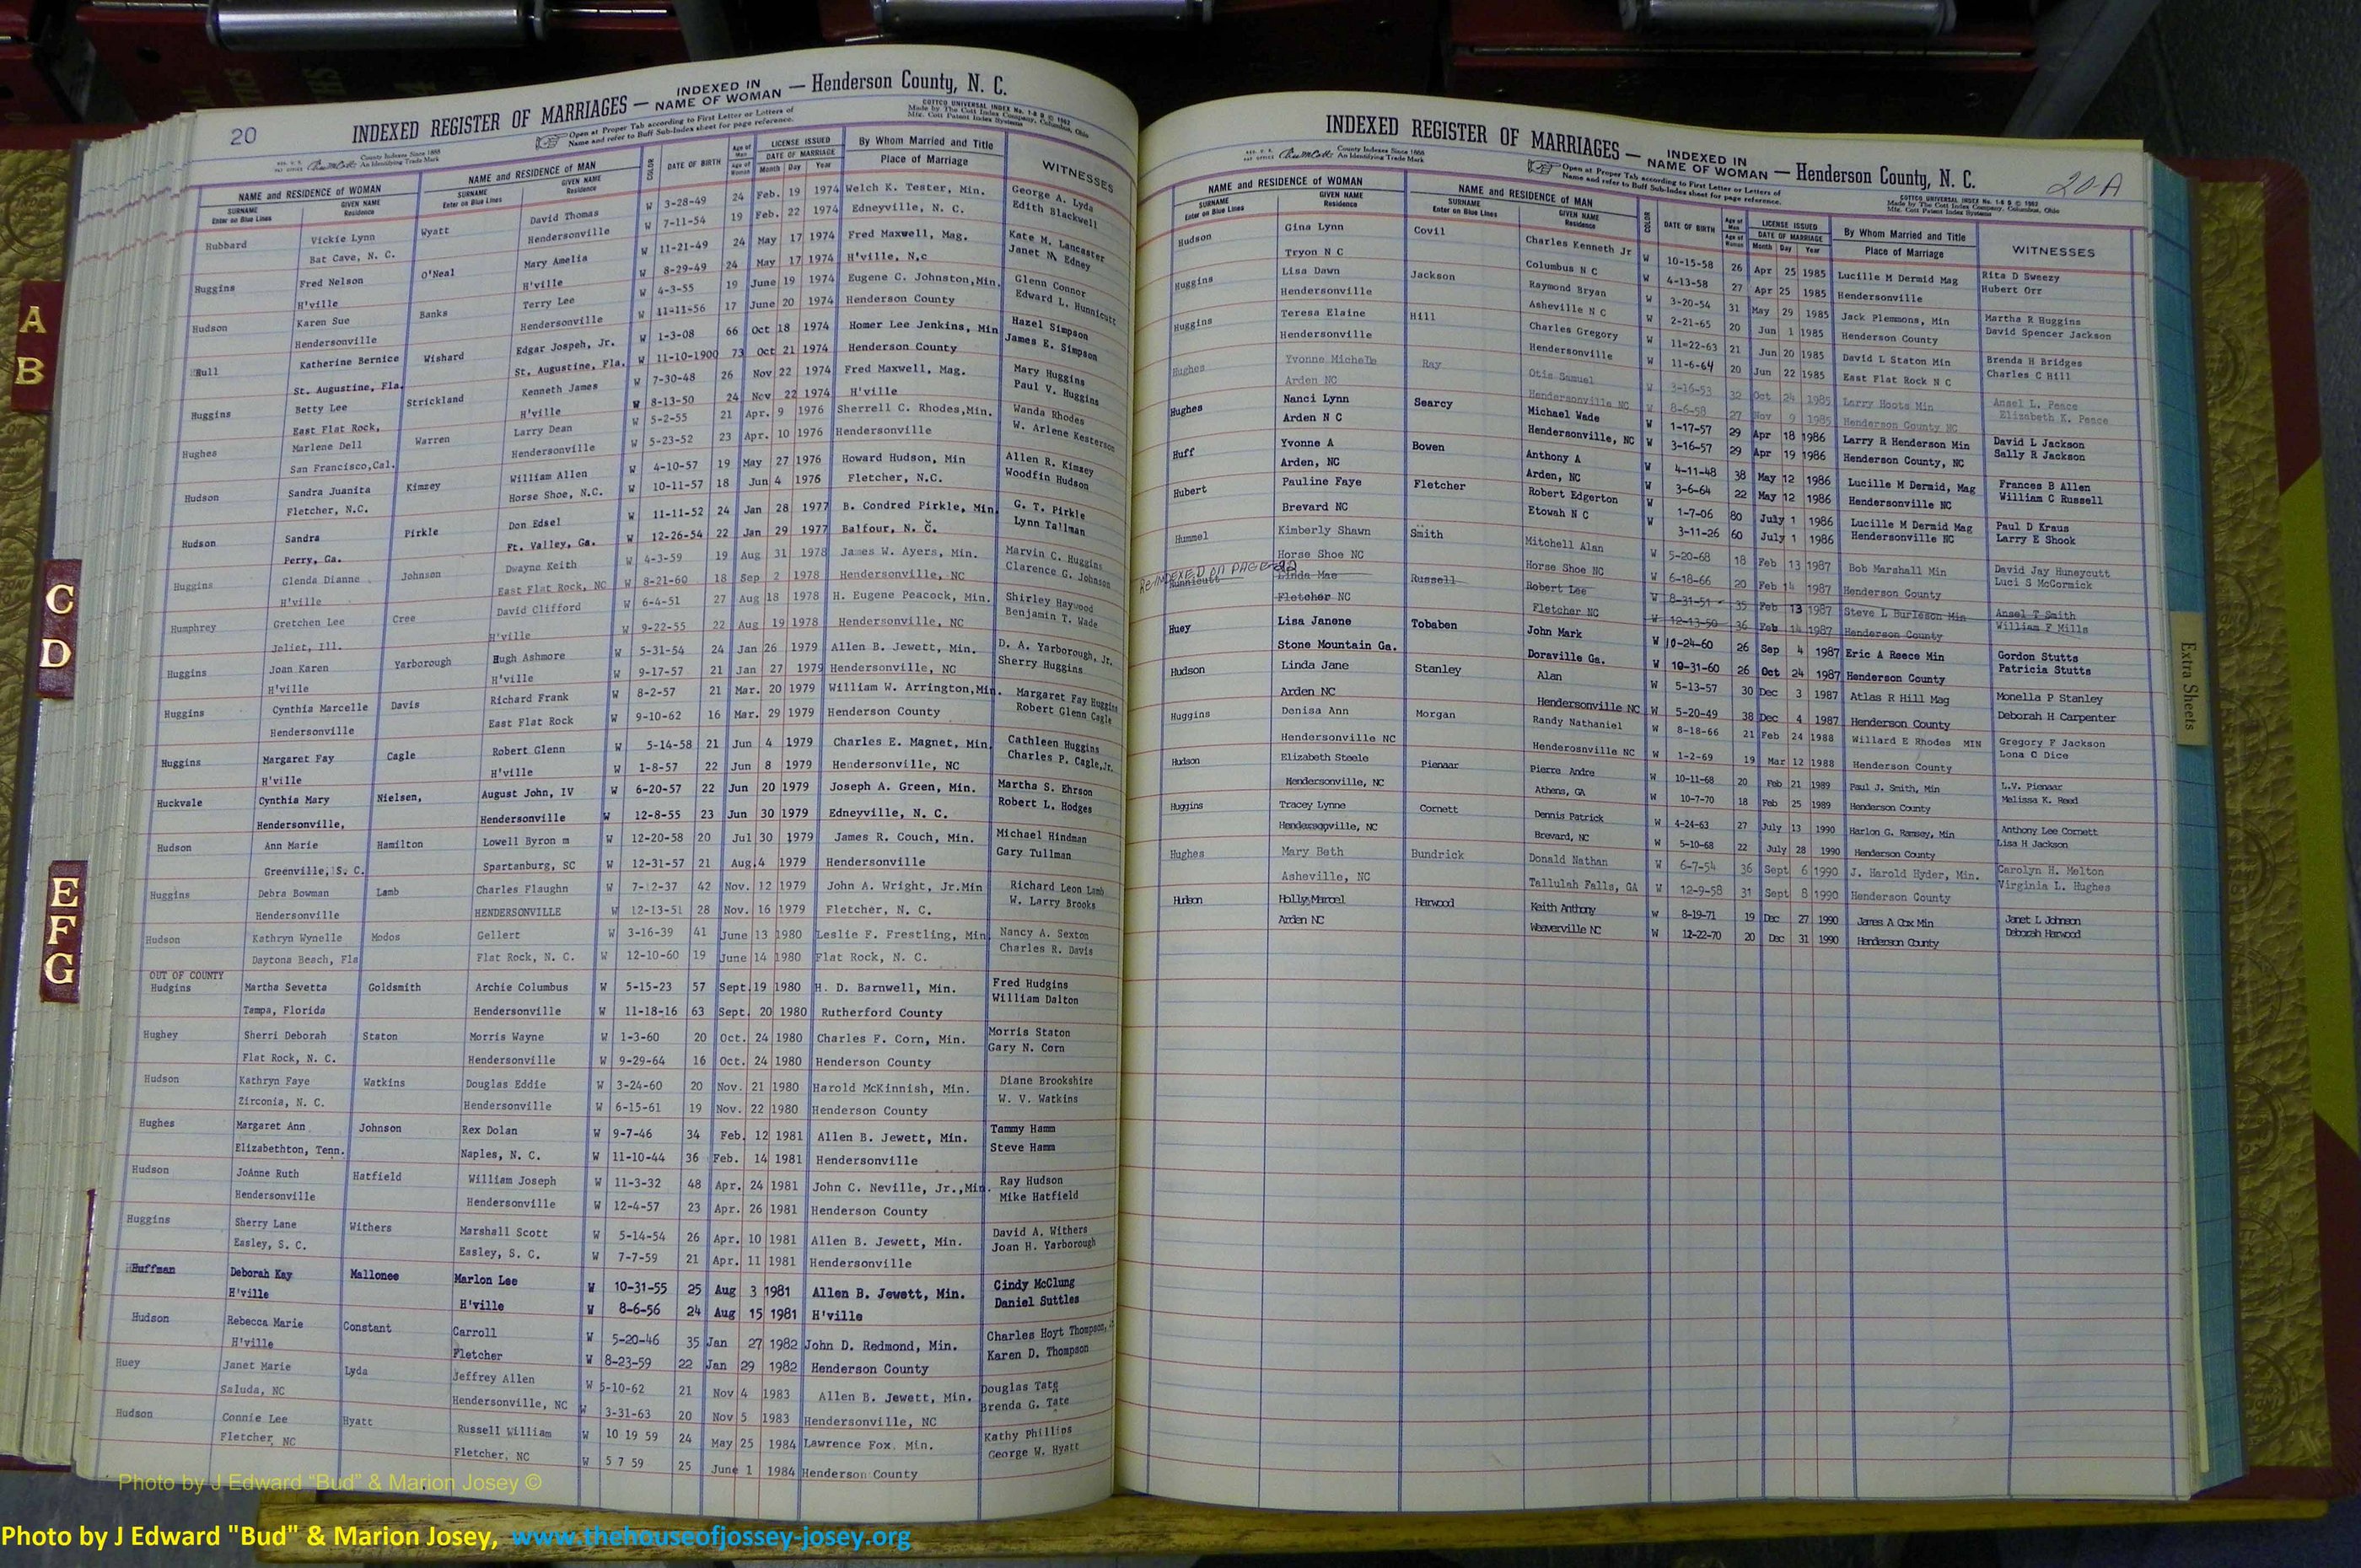 A
B
C
D
E
F
G
20
INDEXED REGISTER OF MARRIAGES — INDEXED IN NAME OF WOMAN — Henderson County, N. C.
County Indexes Since 1888
An Identifying Trade Mark
Open at Proper Tab according to First Letter or Letters of
Name and refer to Buff Sub-Index sheet for page reference.
COTTCO UNIVERSAL INDEX No. 1-8 D © 1962
Made by The Cott Index Company, Columbus, Ohio
Mfrs. Cott Patent Index Systems
NAME and RESIDENCE of WOMAN NAME and RESIDENCE of MAN COLOR DATE OF BIRTH Age of Man LICENSE ISSUED By Whom Married and Title WITNESSES
SURNAME GIVEN NAME SURNAME GIVEN NAME Age of Woman DATE OF MARRIAGE Place of Marriage
Enter on Blue Lines Residence Enter on Blue Lines Residence Month Day Year
Hubbard Vickie Lynn Wyatt David Thomas W 3-28-49 24 Feb. 19 1974 Welch K. Tester, Min. George A. Lyda
Bat Cave, N. C. Hendersonville W 7-11-54 19 Feb. 22 1974 Edneyville, N. C. Edith Blackwell
Huggins Fred Nelson O'Neal Mary Amelia W 11-21-49 24 May 17 1974 Fred Maxwell, Mag. Kate M. Lancaster
H'ville H'ville W 8-29-49 24 May 17 1974 H'ville, N,c Janet M Edney
Hudson Karen Sue Banks Terry Lee W 4-3-55 19 June 19 1974 Eugene C. Johnston,Min. Glenn Connor
Hendersonville Hendersonville W 11-11-56 17 June 20 1974 Henderson County Edward L. Hunnicutt
Hull Katherine Bernice Wishard Edgar Jospeh, Jr. W 1-3-08 66 Oct 18 1974 Homer Lee Jenkins, Min Hazel Simpson
St. Augustine, Fla. St. Augustine, Fla. W 11-10-1900 73 Oct 21 1974 Henderson County James E. Simpson
Huggins Betty Lee Strickland Kenneth James W 7-30-48 26 Nov 22 1974 Fred Maxwell, Mag. Mary Huggins
East Flat Rock, H'ville W 8-13-50 24 Nov 22 1974 H'ville Paul V. Huggins
Hughes Marlene Dell Warren Larry Dean W 5-2-55 21 Apr. 9 1976 Sherrell C. Rhodes,Min. Wanda Rhodes
San Francisco,Cal. Hendersonville W 5-23-52 23 Apr. 10 1976 Hendersonville W. Arlene Kesterson
Hudson Sandra Juanita Kimzey William Allen W 4-10-57 19 May 27 1976 Howard Hudson, Min Allen R. Kimzey
Fletcher, N.C. Horse Shoe, N.C. W 10-11-57 18 Jun 4 1976 Fletcher, N.C. Woodfin Hudson
Hudson Sandra Pirkle Don Edsel W 11-11-52 24 Jan 28 1977 B. Condred Pirkle, Min. G. T. Pirkle
Perry, Ga. Ft. Valley, Ga. W 12-26-54 22 Jan 29 1977 Balfour, N. C. Lynn Tallman
Huggins Glenda Dianne Johnson Dwayne Keith W 4-3-59 19 Aug 31 1978 James W. Ayers, Min. Marvin C. Huggins
H'ville East Flat Rock, NC W 8-21-60 18 Sep 2 1978 Hendersonville, NC Clarence G. Johnson
Humphrey Gretchen Lee Cree David Clifford W 6-4-51 27 Aug 18 1978 H. Eugene Peacock, Min. Shirley Haywood
Joliet, Ill. H'ville W 9-22-55 22 Aug 19 1978 Hendersonville, NC Benjamin T. Wade
Huggins Joan Karen Yarborough Hugh Ashmore W 5-31-54 24 Jan 26 1979 Allen B. Jewett, Min. D. A. Yarborough, Jr.
H'ville H'ville W 9-17-57 21 Jan 27 1979 Hendersonville, NC Sherry Huggins
Huggins Cynthia Marcelle Davis Richard Frank W 8-2-57 21 Mar. 20 1979 William W. Arrington,Min. Margaret Fay Huggins
Hendersonville East Flat Rock W 9-10-62 16 Mar. 29 1979 Henderson County Robert Glenn Cagle
Huggins Margaret Fay Cagle Robert Glenn W 5-14-58 21 Jun 4 1979 Charles E. Magnet, Min. Cathleen Huggins
H'ville H'ville W 1-8-57 22 Jun 8 1979 Hendersonville, NC Charles P. Cagle,Jr.
Huckvale Cynthia Mary Nielsen, August John, IV W 6-20-57 22 Jun 20 1979 Joseph A. Green, Min. Martha S. Ehrson
Hendersonville, Hendersonville W 12-8-55 23 Jun 30 1979 Edneyville, N. C. Robert L. Hodges
Hudson Ann Marie Hamilton Lowell Byron m W 12-20-58 20 Jul 30 1979 James R. Couch, Min. Michael Hindman
Greenville, S. C. Spartanburg, SC W 12-31-57 21 Aug.4 1979 Hendersonville Gary Tullman
Huggins Debra Bowman Lamb Charles Flaughn W 7-12-37 42 Nov. 12 1979 John A. Wright, Jr.Min Richard Leon Lamb
Hendersonville HENDERSONVILLE W 12-13-51 28 Nov. 16 1979 Fletcher, N. C. W. Larry Brooks
Hudson Kathryn Wynelle Modos Gellert W 3-16-39 41 June 13 1980 Leslie F. Frestling, Min Nancy A. Sexton
Daytona Beach, Fla Flat Rock, N. C. W 12-10-60 19 June 14 1980 Flat Rock, N. C. Charles R. Davis
OUT OF COUNTY
Hudgins Martha Sevetta Goldsmith Archie Columbus W 5-15-23 57 Sept.19 1980 H. D. Barnwell, Min. Fred Hudgins
Tampa, Florida Hendersonville W 11-18-16 63 Sept. 20 1980 Rutherford County William Dalton
Hughey Sherri Deborah Staton Morris Wayne W 1-3-60 20 Oct. 24 1980 Charles F. Corn, Min. Morris Staton
Flat Rock, N. C. Hendersonville W 9-29-64 16 Oct. 24 1980 Henderson County Gary N. Corn
Hudson Kathryn Faye Watkins Douglas Eddie W 3-24-60 20 Nov. 21 1980 Harold McKinnish, Min. Diane Brookshire
Zirconia, N. C. Hendersonville W 6-15-61 19 Nov. 22 1980 Henderson County W. V. Watkins
Hughes Margaret Ann Johnson Rex Dolan W 9-7-46 34 Feb. 12 1981 Allen B. Jewett, Min. Tammy Hamm
Elizabethton, Tenn. Naples, N. C. W 11-10-44 36 Feb. 14 1981 Hendersonville Steve Hamm
Hudson JoAnne Ruth Hatfield William Joseph W 11-3-32 48 Apr. 24 1981 John C. Neville, Jr.,Min. Ray Hudson
Hendersonville Hendersonville W 12-4-57 23 Apr. 26 1981 Henderson County Mike Hatfield
Huggins Sherry Lane Withers Marshall Scott W 5-14-54 26 Apr. 10 1981 Allen B. Jewett, Min. David A. Withers
Easley, S. C. Easley, S. C. W 7-7-59 21 Apr. 11 1981 Hendersonville Joan H. Yarborough
Huffman Deborah Kay Mallonee Marlon Lee W 10-31-55 25 Aug 3 1981 Allen B. Jewett, Min. Cindy McClung
H'ville H'ville W 8-6-56 24 Aug 15 1981 H'ville Daniel Suttles
Hudson Rebecca Marie Constant Carroll W 5-20-46 35 Jan 27 1982 John D. Redmond, Min. Charles Hoyt Thompson,
H'ville Fletcher W 8-23-59 22 Jan 29 1982 Henderson County Karen D. Thompson
Huey Janet Marie Lyda Jeffrey Allen W 5-10-62 21 Nov 4 1983 Allen B. Jewett, Min. Douglas Tate
Saluda, NC Hendersonville, NC W 3-31-63 20 Nov 5 1983 Hendersonville, NC Brenda G. Tate
Hudson Connie Lee Hyatt Russell William W 10 19 59 24 May 25 1984 Lawrence Fox. Min. Kathy Phillips
Fletcher, NC Fletcher, NC W 5 7 59 25 June 1 1984 Henderson County George W. Hyatt
INDEXED REGISTER OF MARRIAGES — INDEXED IN NAME OF WOMAN — Henderson County, N. C.
20-A
County Indexes Since 1888
An Identifying Trade Mark
Open at Proper Tab according to First Letter or Letters of
Name and refer to Buff Sub-Index sheet for page reference.
COTTCO UNIVERSAL INDEX No. 1-8 D © 1962
Made by The Cott Index Company, Columbus, Ohio
Mfrs. Cott Patent Index Systems
NAME and RESIDENCE of WOMAN NAME and RESIDENCE of MAN COLOR DATE OF BIRTH Age of Man LICENSE ISSUED By Whom Married and Title WITNESSES
SURNAME GIVEN NAME SURNAME GIVEN NAME Age of Woman DATE OF MARRIAGE Place of Marriage
Enter on Blue Lines Residence Enter on Blue Lines Residence Month Day Year
Hudson Gina Lynn Covil Charles Kenneth Jr W 10-15-58 26 Apr 25 1985 Lucille M Dermid Mag Rita D Sweezy
Tryon N C Columbus N C W 4-13-58 27 Apr 25 1985 Hendersonville Hubert Orr
Huggins Lisa Dawn Jackson Raymond Bryan W 3-20-54 31 May 29 1985 Jack Plemmons, Min Martha R Huggins
Hendersonville Asheville N C W 2-21-65 20 Jun 1 1985 Henderson County David Spencer Jackson
Huggins Teresa Elaine Hill Charles Gregory W 11=22-63 21 Jun 20 1985 David L Staton Min Brenda H Bridges
Hendersonville Hendersonville W 11-6-64 20 Jun 22 1985 East Flat Rock N C Charles C Hill
Hughes Yvonne Michelle Ray Otis Samuel W 3-16-53 32 Oct 24 1985 Larry Hoots Min Ansel L. Peace
Arden NC Hendersonville NC W 8-6-58 27 Nov 9 1985 Henderson County NC Elizabeth K. Peace
Hughes Nanci Lynn Searcy Michael Wade W 1-17-57 29 Apr 18 1986 Larry R Henderson Min David L Jackson
Arden N C Hendersonville, NC W 3-16-57 29 Apr 19 1986 Henderson County, NC Sally R Jackson
Huff Yvonne A Bowen Anthony A W 4-11-48 38 May 12 1986 Lucille M Dermid, Mag Frances B Allen
Arden, NC Arden, NC W 3-6-64 22 May 12 1986 Hendersonville NC William C Russell
Hubert Pauline Faye Fletcher Robert Edgerton W 1-7-06 80 July 1 1986 Lucille M Dermid Mag Paul D Kraus
Brevard NC Etowah N C W 3-11-26 60 July 1 1986 Hendersonville NC Larry E Shook
Hummel Kimberly Shawn Smith Mitchell Alan W 5-20-68 18 Feb 13 1987 Bob Marshall Min David Jay Huneycutt
Horse Shoe NC Horse Shoe NC W 6-18-66 20 Feb 14 1987 Henderson County Luci S McCormick
Re-INDEXED ON PAGE 22
Hunnicutt Linda Mae Russell Robert Lee W 8-31-51 35 Feb 13 1987 Steve L Burleson Min Ansel T Smith
Fletcher NC Fletcher NC W 12-13-50 36 Feb 14 1987 Henderson County William F Mills
Huey Lisa Janene Tobaben John Mark W 10-24-60 26 Sep 4 1987 Eric A Reece Min Gordon Stutts
Stone Mountain Ga. Doraville Ga. W 10-31-60 26 Oct 24 1987 Henderson County Patricia Stutts
Hudson Linda Jane Stanley Alan W 5-13-57 30 Dec 3 1987 Atlas R Hill Mag Monella P Stanley
Arden NC Hendersonville NC W 5-20-49 38 Dec 4 1987 Henderson County Deborah H Carpenter
Huggins Denisa Ann Morgan Randy Nathaniel W 8-18-66 21 Feb 24 1988 Willard E Rhodes MIN Gregory F Jackson
Hendersonville NC Henderosnville NC W 1-2-69 19 Mar 12 1988 Henderson County Lona C Dice
Hudson Elizabeth Steele Pienaar Pierre Andre W 10-11-68 20 Feb 21 1989 Paul J. Smith, Min L.V. Pienaar
Hendersonville, NC Athens, GA W 10-7-70 18 Feb 25 1989 Henderson County Melissa K. Reed
Huggins Tracey Lynne Cornett Dennis Patrick W 4-24-63 27 July 13 1990 Harlon G. Ramsey, Min Anthony Lee Cornett
Hendersonville, NC Brevard, NC W 5-10-68 22 July 28 1990 Henderson County Lisa H Jackson
Hughes Mary Beth Bundrick Donald Nathan W 6-7-54 36 Sept 6 1990 J. Harold Hyder, Min. Carolyn H. Melton
Asheville, NC Tallulah Falls, GA W 12-9-58 31 Sept 8 1990 Henderson County Virginia L. Hughes
Hudson Holly Marcel Harwood Keith Anthony W 8-19-71 19 Dec 27 1990 James A Cox Min Janet L Johnson
Arden NC Weaverville NC W 12-22-70 20 Dec 31 1990 Henderson County Deborah Harwood
Extra Sheets
Photo by J Edward “Bud” & Marion Josey ©
Photo by J Edward "Bud" & Marion Josey, www.thehouseofjossey-josey.org